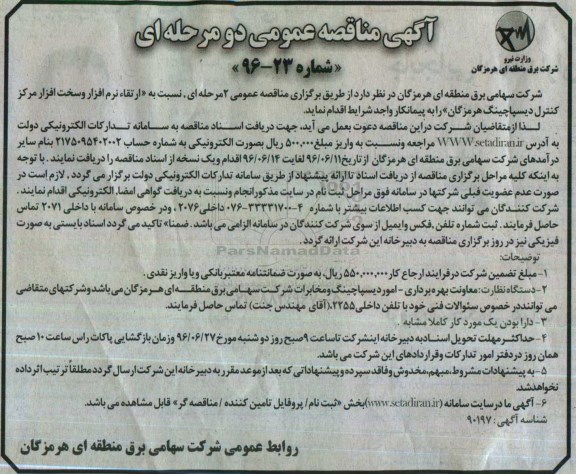 آگهی مناقصه عمومی دو مرحله ای
« شماره ۲۳-۹۶ »
وزارت نیرو
شرکت برق منطقه ای هرمزگان
شرکت سهامی برق منطقه ای هرمزگان در نظر دارد از طریق برگزاری مناقصه عمومی ۲مرحله ای , نسبت به «ارتقاء نرم افزار وسخت افزار مرکز
کنترل دیسپاچینگ هرمزگان» را به پیمانکار واجد شرایط اقدام نماید.
لذا از متقاضیان شرکت در این مناقصه دعوت بعمل می آید, جهت دریافت اسناد مناقصه به سامانه تدارکات الکترونیکی دولت
به آدرس www.setadiran.ir مراجعه ونسبت به واریز مبلغ ۵۰۰,۰۰۰ ریال بصورت الکترونیکی به شماره حساب ۲۱۷۵۰۹۵۴۰۲۰۰۲ بنام سایر
درآمدهای شرکت سهامی برق منطقه ای هرمزگان از تاریخ ۹۶/۰۶/۱۱ لغایت ۹۶/۰۶/۱۴ اقدام ویک نسخه از اسناد مناقصه را دریافت نمایند. با توجه
به اینکه کلیه مراحل برگزاری مناقصه از دریافت اسناد تا ارائه پیشنهاد از طریق سامانه تدارکات الکترونیکی دولت برگزار می گردد , لازم است در
صورت عدم عضویت قبلی شرکتها در سامانه فوق مراحل ثبت نام در سایت مذکور انجام ونسبت به دریافت گواهی امضا, الکترونیکی اقدام نمایند .
شرکت کنندگان می توانند جهت کسب اطلاعات بیشتر با شماره ۴-۳۳۳۳۱۷۰۰-۰۷۶ داخلی ۲۰۷۶ , ودر خصوص سامانه با داخلی ۲۰۷۱ تماس
حاصل فرمایند . ثبت شماره تلفن ,فکس وایمیل از سوی شرکت کنندگان در سامانه الزامی می باشد . ضمنا" تاکید می گردد اسناد بایستی به صورت
فیزیکی نیز در روز برگزاری مناقصه به دبیرخانه این شرکت ارائه گردد .
توضیحات:
۱- مبلغ تضمین شرکت در فرایند ارجاع کار ۵۵۰,۰۰۰,۰۰۰ ریال, به صورت ضمانتنامه معتبربانکی ویا واریز نقدی.
۲- دستگاه نظارت: معاونت بهره برداری - امور دیسپاچینگ ومخابرات شرکت سهامی برق منطقه ای هرمزگان می باشد وشرکتهای متقاضی
می توانند در خصوص سئوالات فنی خود با تلفن داخلی ۲۲۵۵, (آقای مهندس جنت) تماس حاصل فرمایند.
۳- دارا بودن یک مورد کار کاملا مشابه .
۴- حداکثر مهلت تحویل اسناد به دبیر خانه اینشرکت تا ساعت ۹ صبح روز دو شنبه مورخ ۹۶/۰۶/۲۷ وزمان بازگشایی پاکات راس ساعت ۱۰ صبح
همان روز در دفتر امور تدارکات وقراردادهای این شرکت می باشد.
۵- به پیشنهادات مشروط, مبهم, مخدوش وفاقد سپرده و پیشنهاداتی که بعد از موعد مقرر به دبیرخانه این شرکت ارسال گردد مطلقاً تر تیب اثر داده
نخواهدشد.
۶- آگهی ما در سایت سامانه (www.setadiran.ir) بخش «ثبت نام / پروفایل تامین کننده / مناقصه گر» قابل مشاهده می باشد.
شناسه آگهی : ۹۰۱۹۷
روابط عمومی شرکت سهامی برق منطقه ای هرمزگان
ParsNamadData